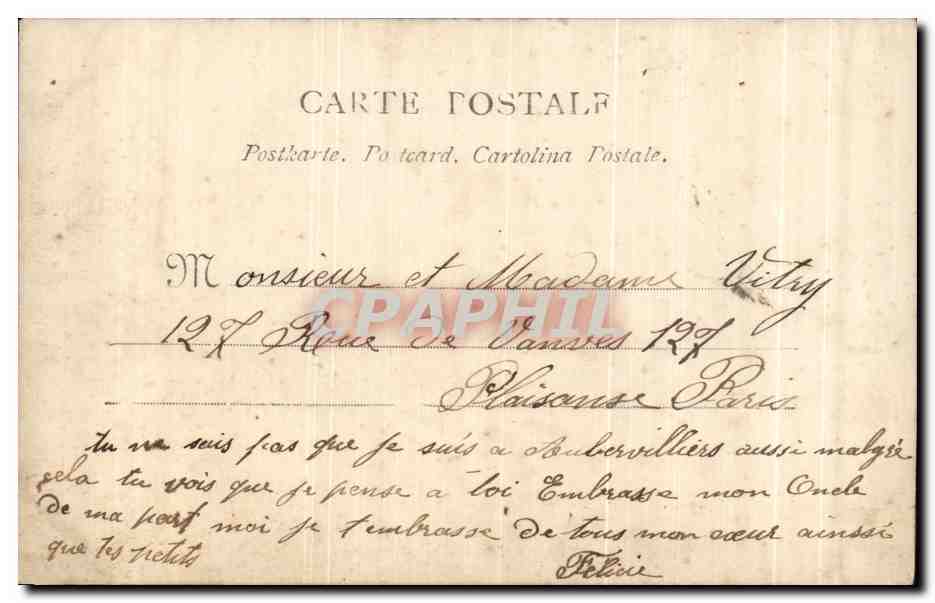 CARTE POSTALE
Postkarte. Postcard. Cartolina Postale.
Monsieur et Madame Vitry
CPAPHIL
127 Roue de Vanves 127
Plaisanse Paris
tu ne sais pas que je suis a Aubervilliers aussi malgré
cela tu vois que je pense a toi Embrasse mon Oncle
de ma part moi je t'embrasse de tous mon cœur ainssi
que tes petits
Felicie